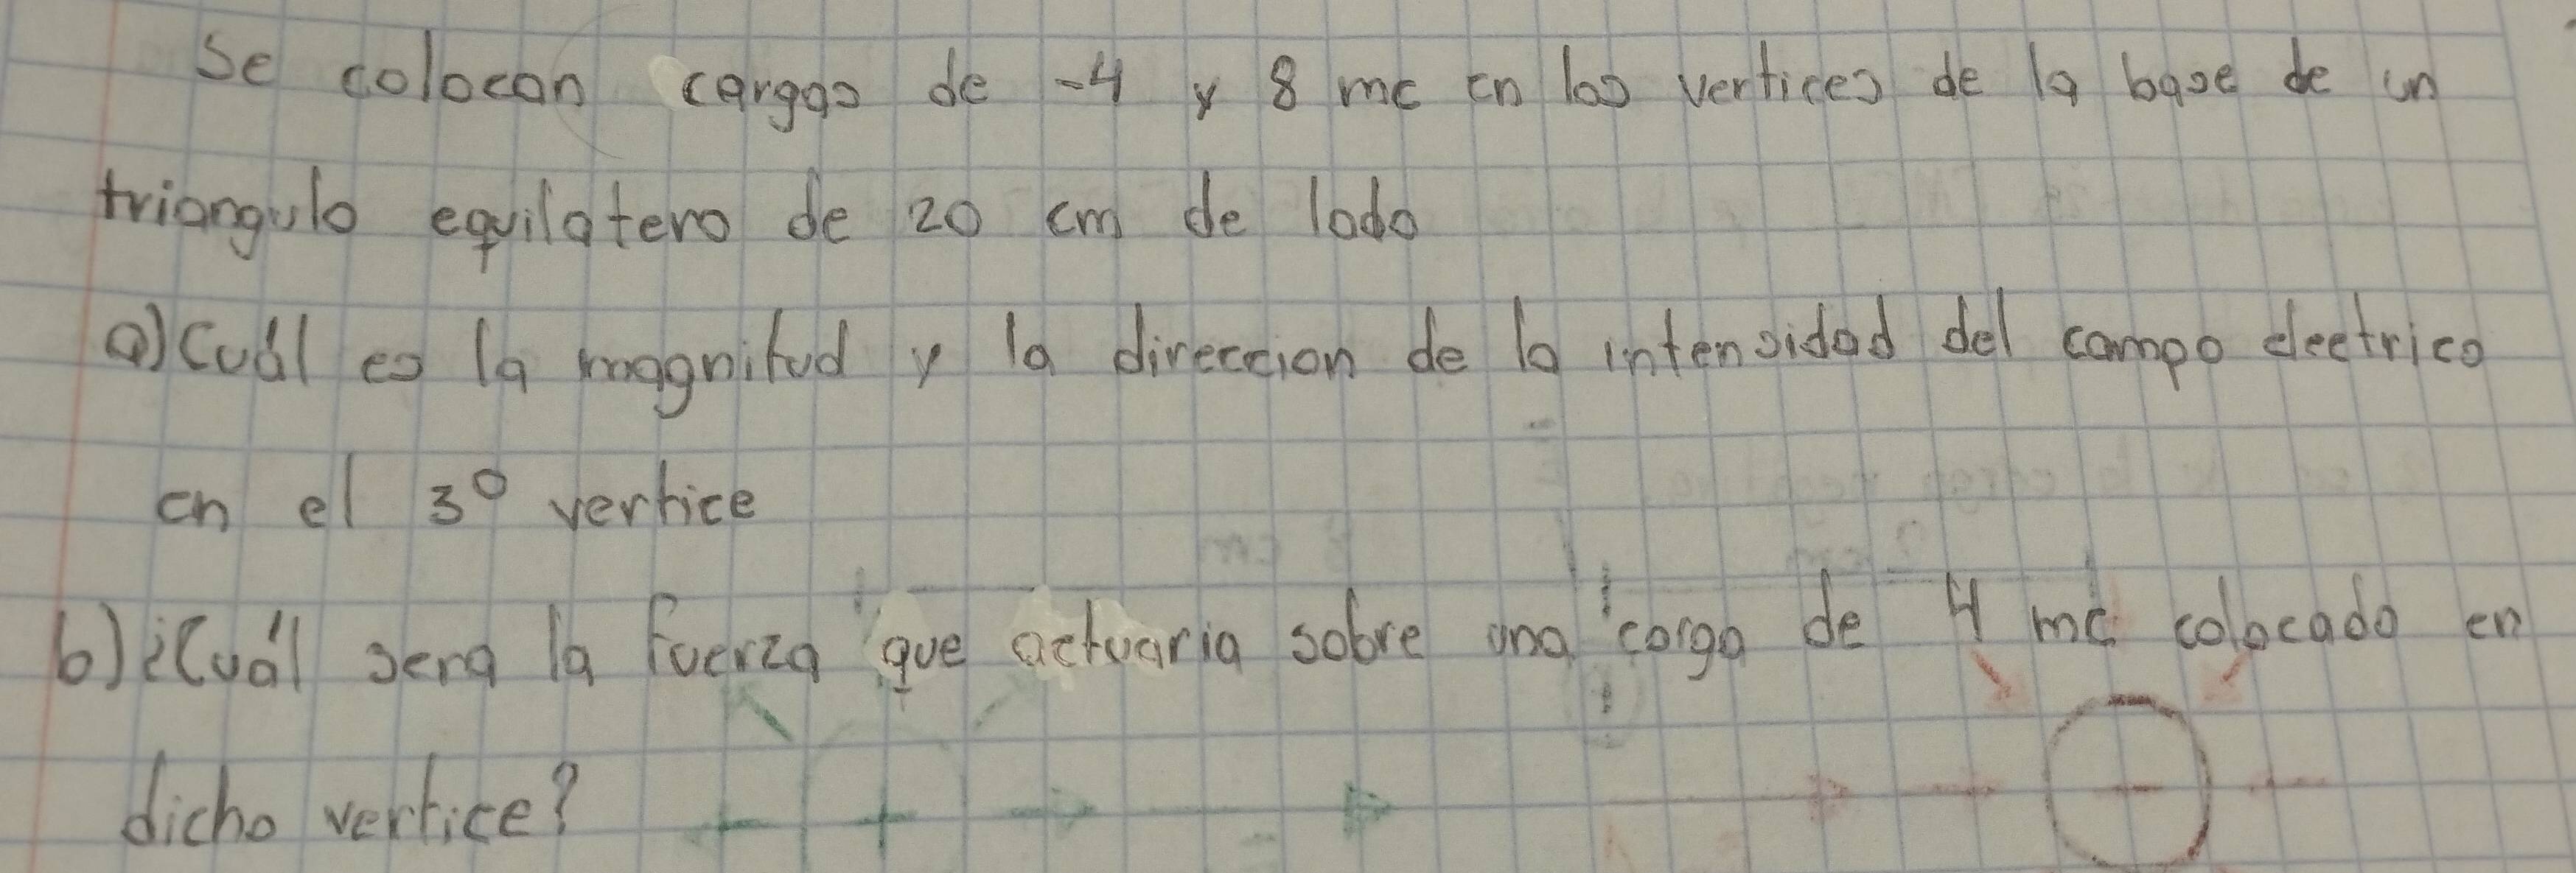 Se colocan cargas de -4 y 8 mc en los vertices de la base de un
triangulo equilatero de 20 cm de lado
a) Cuál es la magnitud y la direccion de la intensidad del campo electrico
en el 3º vertice
b) ¿Cuál sera la fuerza que actuaria sobre una carga de 4 mc colocado en
dicho vertice?